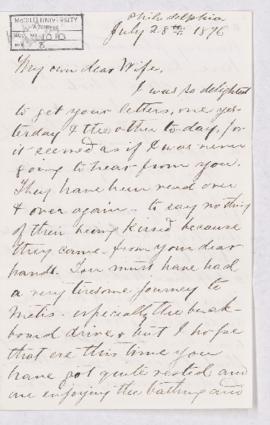 McGILL UNIVERSITY
ARCHIVES
ACC. NO. 1010
REF. 8
Philadelphia
July 28th 1876
My own dear Wife,
I was so delighted
to get your letters, one yes-
terday & the other to-day, for
it seemed as if I was never
going to hear from you.
They have been read over
& over again - to say nothing
of their being kissed because
they came from your dear
hands. You must have had
a very tiresome journey to
Metis - especially the buck-
board drive, but I hope
that ere this time you
have got quite rested and
are enjoying the bathing and